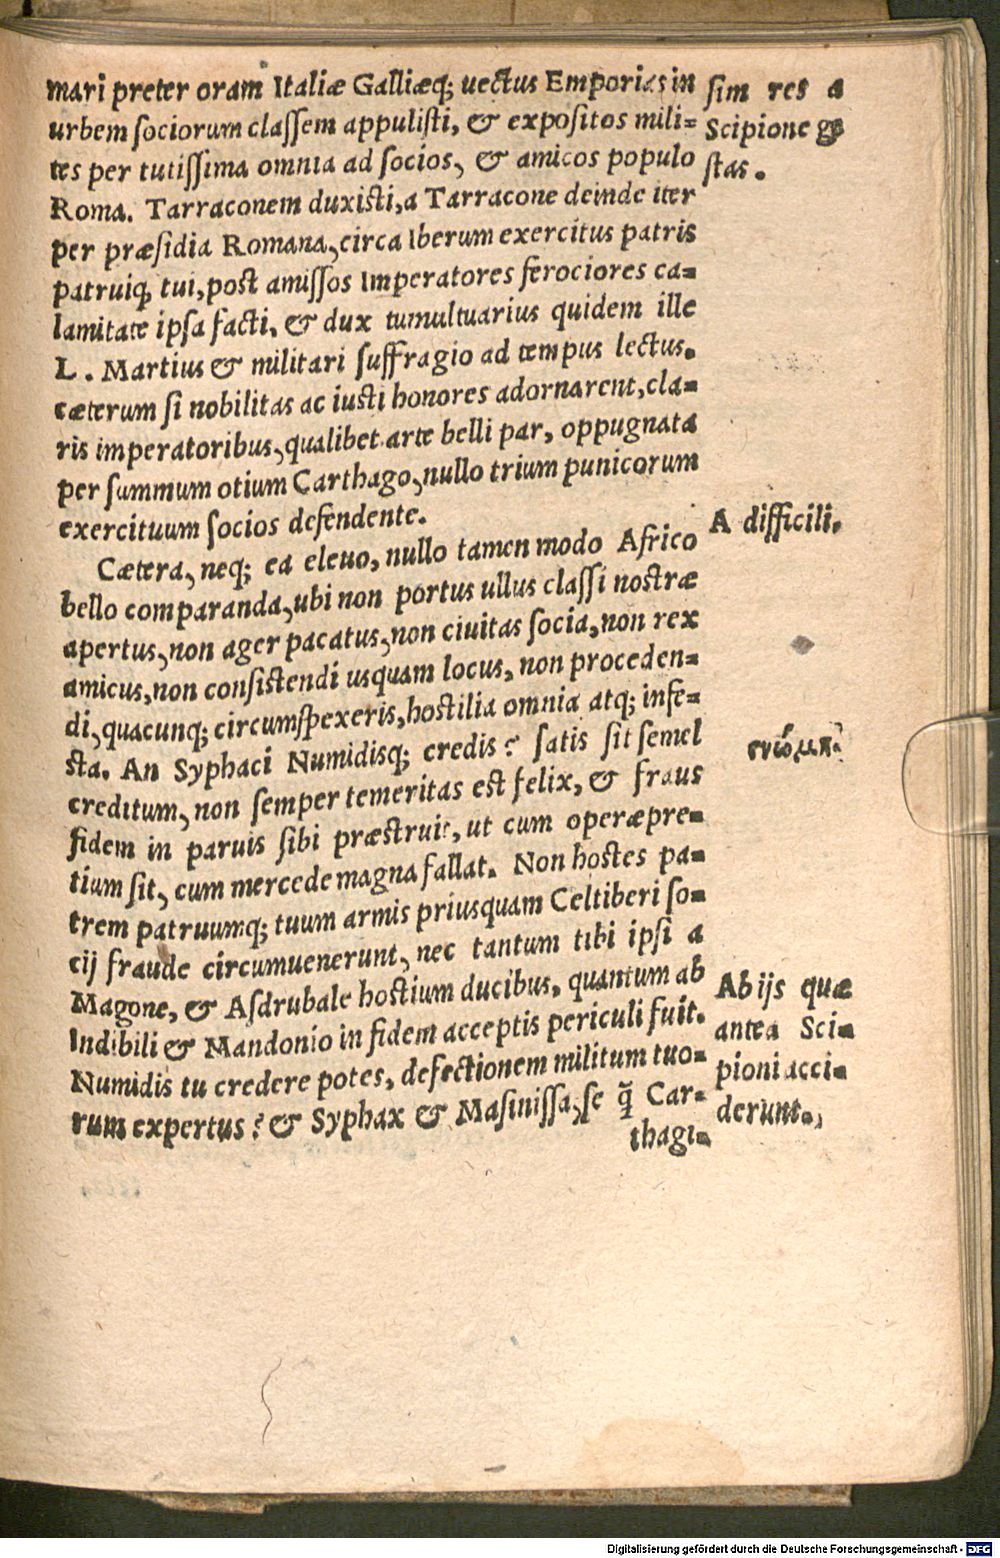 mari preter oram Italiæ Galliæq; uectus Emporias in
urbem sociorum classem appulisti, & expositos mili=
tes per tutissima omnia ad socios, & amicos populo
Roma. Tarraconem duxisti, a Tarracone deinde iter
per præsidia Romana, circa Iberum exercitus patris
patruiq; tui, post amissos Imperatores ferociores ca=
lamitate ipsa facti, & dux tumultuarius quidem ille
L. Martius & militari suffragio ad tempus lectus.
cæterum si nobilitas ac iusti honores adornarent, cla=
ris imperatoribus, qualibet arte belli par, oppugnata
per summum otium Carthago, nullo trium punicorum
exercituum socios defendente.
Cætera, neq; ea eleuo, nullo tamen modo Africo
bello comparanda, ubi non portus ullus classi nostræ
apertus, non ager pacatus, non ciuitas socia, non rex
amicus, non consistendi usquam locus, non proceden=
di, quacunq; circumspexeris, hostilia omnia atq; infe=
sta. An Syphaci Numidisq; credis? satis sit semel
creditum, non semper temeritas est felix, & fraus
fidem in paruis sibi præstruit, ut cum operæpre=
tium sit, cum mercede magna fallat. Non hostes pa=
trem patruumq; tuum armis priusquam Celtiberi so=
cij fraude circumuenerunt, nec tantum tibi ipsi a
Magone, & Asdrubale hostium ducibus, quantum ab
Indibili & Mandonio in fidem acceptis periculi fuit.
Numidis tu credere potes, defectionem militum tuo=
rum expertus? & Syphax & Masinissa, se q̃ Car=
thagi=
sim res a
Scipione ge
stas.
A difficili.
Ab ijs quæ
antea Sci=
pioni acci=
derunt.,
Digitalisierung gefördert durch die Deutsche Forschungsgemeinschaft - DFG